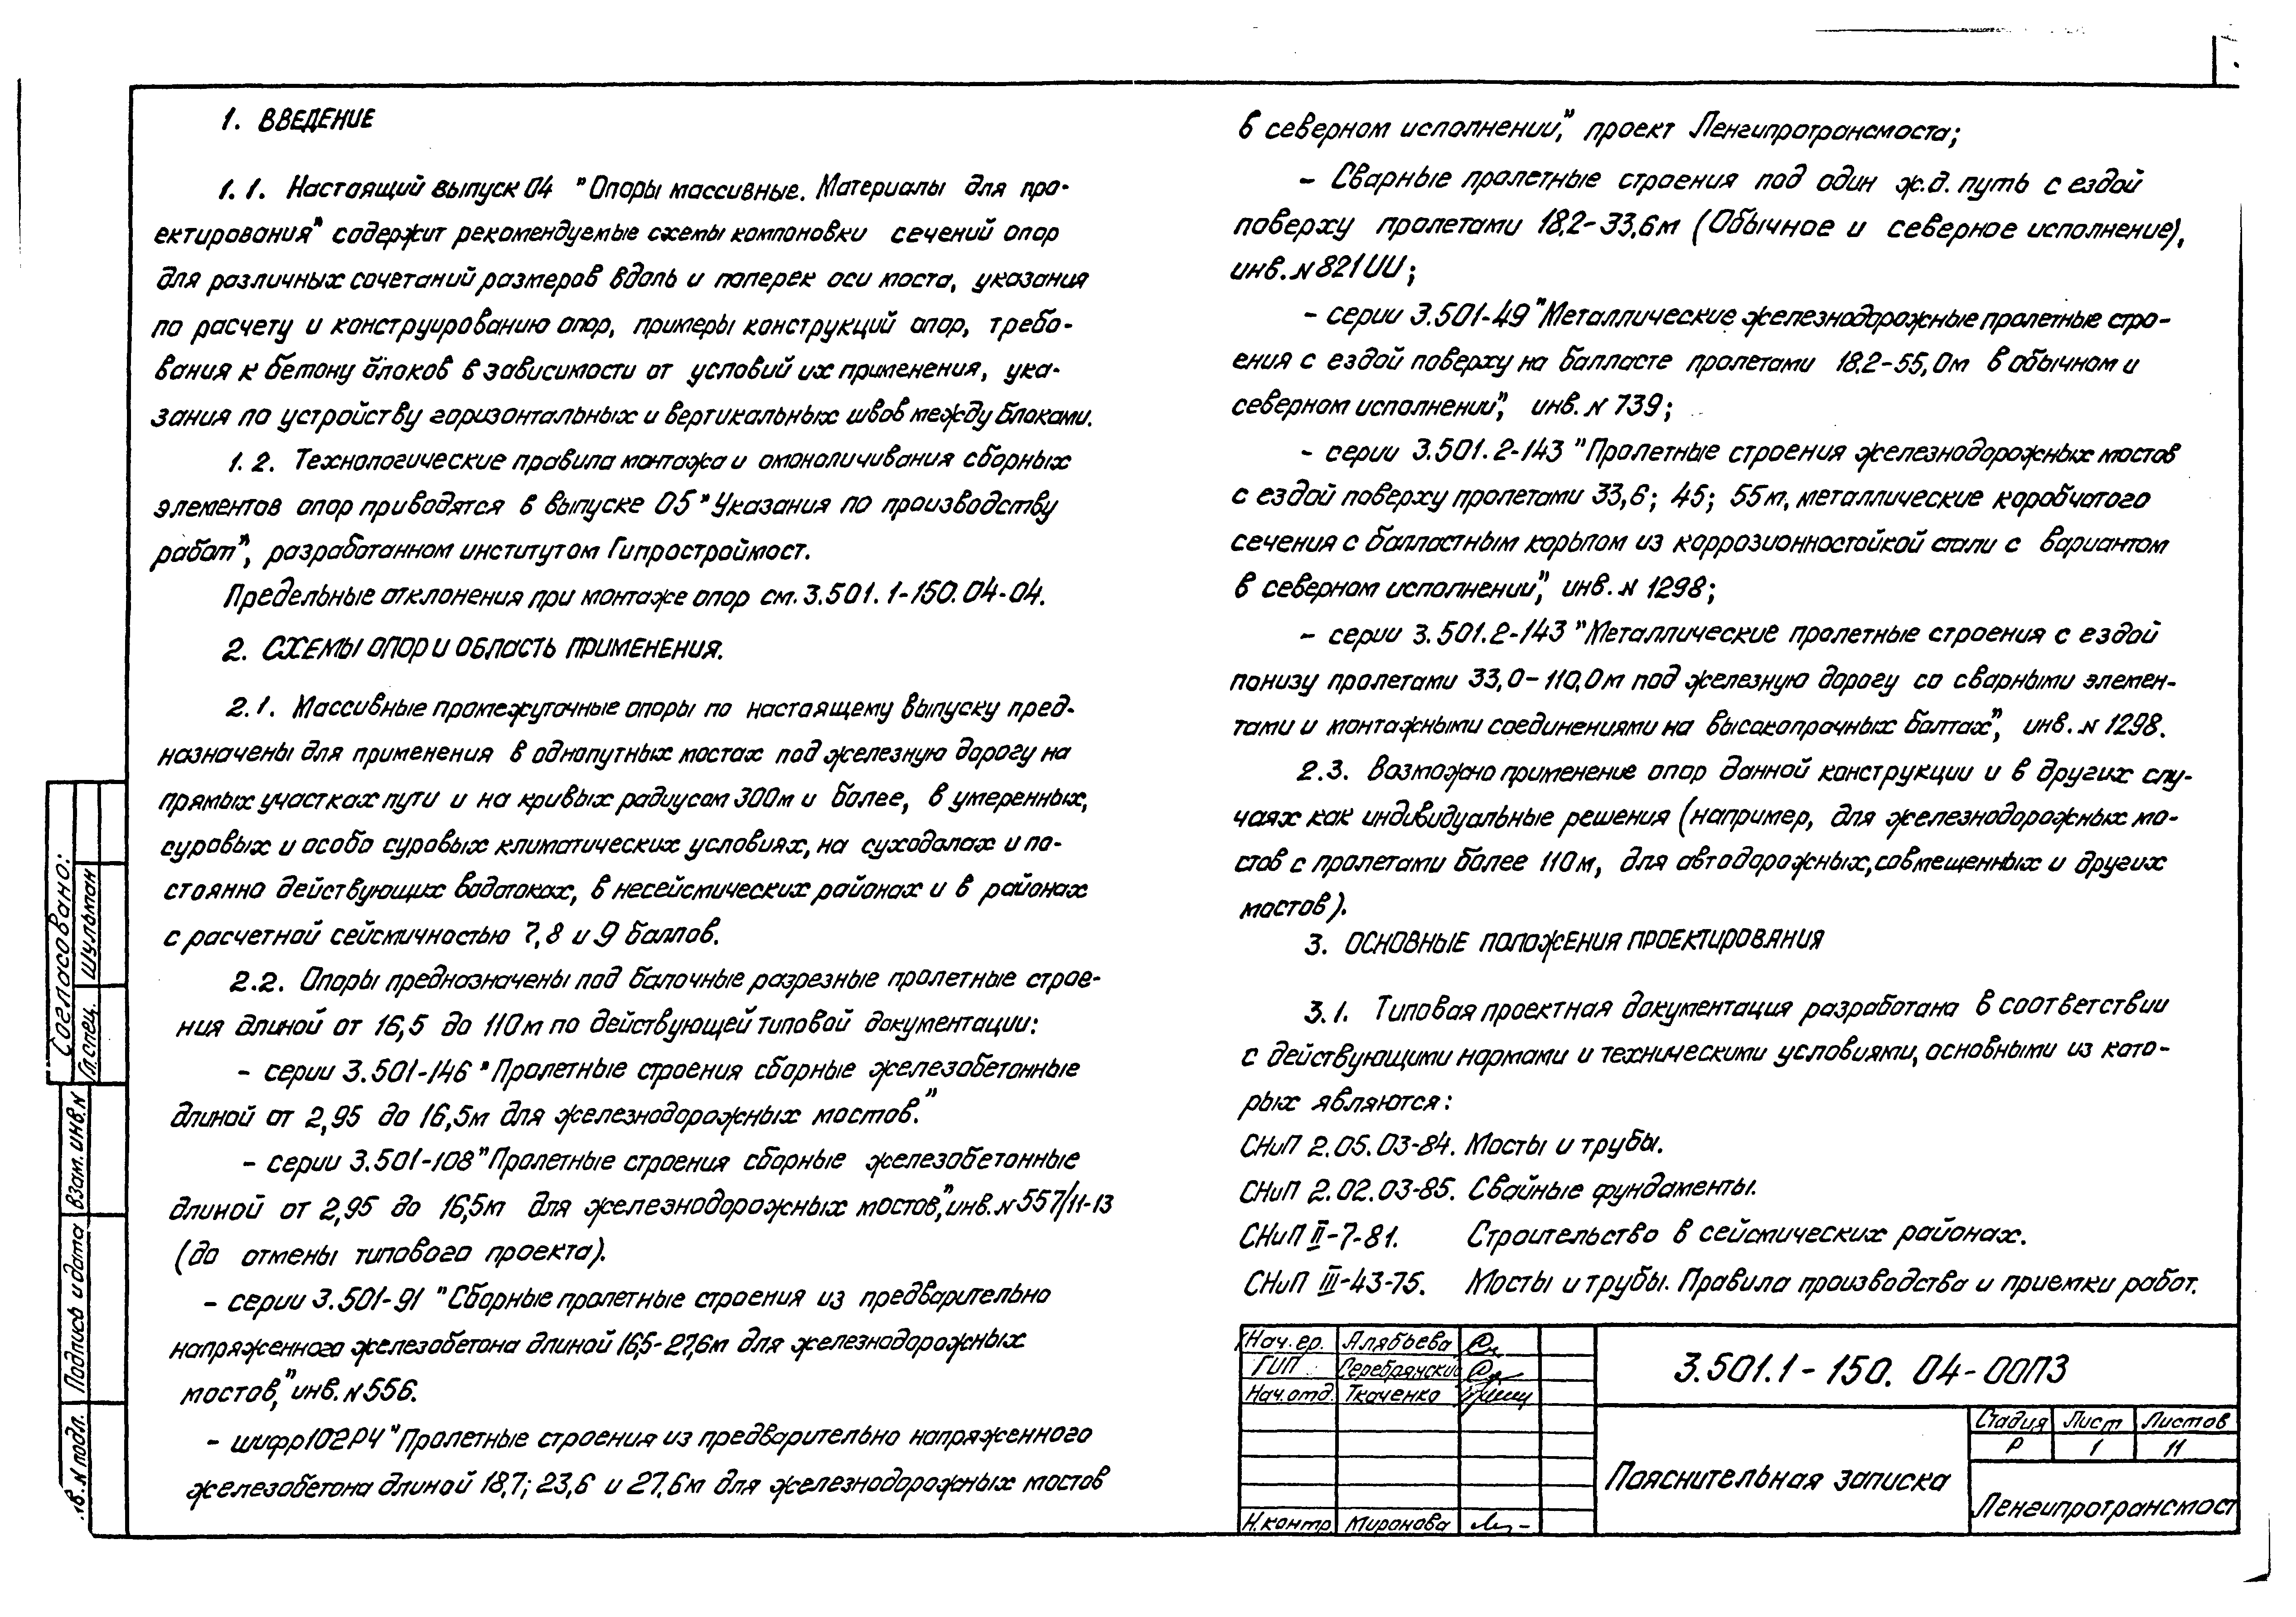 1. ВВЕДЕНИЕ
1.1. Настоящий выпуск 04 "Опоры массивные. Материалы для про-
ектирования" содержит рекомендуемые схемы компоновки сечений опор
для различных сочетаний размеров вдоль и поперек оси моста, указания
по расчету и конструированию опор, примеры конструкций опор, требо-
вания к бетону блоков в зависимости от условий их применения, ука-
зания по устройству горизонтальных и вертикальных швов между блоками.
1.2. Технологические правила монтажа и омоноличивания сборных
элементов опор приводятся в выпуске 05 "Указания по производству
работ", разработанном институтом Гипростроймост.
Предельные отклонения при монтаже опор см. 3.501.1-150.04-04.
2. СХЕМЫ ОПОР И ОБЛАСТЬ ПРИМЕНЕНИЯ.
2.1. Массивные промежуточные опоры по настоящему выпуску пред-
назначены для применения в однопутных мостах под железную дорогу на
прямых участках пути и на кривых радиусом 300м и более, в умеренных,
суровых и особо суровых климатических условиях, на суходолах и по-
стоянно действующих водотоках, в несейсмических районах и в районах
с расчетной сейсмичностью 7,8 и 9 баллов.
2.2. Опоры предназначены под балочные разрезные пролетные строе-
ния длиной от 16,5 до 110м по действующей типовой документации:
- серии 3.501-146 "Пролетные строения сборные железобетонные
длиной от 2,95 до 16,5м для железнодорожных мостов."
- серии 3.501-108 "Пролетные строения сборные железобетонные
длиной от 2,95 до 16,5м для железнодорожных мостов", инв. N 557/11-13
(до отмены типового проекта).
- серии 3.501-91 "Сборные пролетные строения из предварительно
напряженного железобетона длиной 16,5-27,6м для железнодорожных
мостов", инв. N 556.
- шифр 102РЧ "Пролетные строения из предварительно напряженного
железобетона длиной 18,7; 23,6 и 27,6м для железнодорожных мостов
в северном исполнении", проект Ленгипротрансмоста;
- Сварные пролетные строения под один ж.д. путь с ездой
поверху пролетами 18,2-33,6м (Обычное и северное исполнение),
инв. N 821ИИ;
- серии 3.501-49 "Металлические железнодорожные пролетные стро-
ения с ездой поверху на балласте пролетами 18.2-55,0м в обычном и
северном исполнении", инв. N 739;
- серии 3.501.2-143 "Пролетные строения железнодорожных мостов
с ездой поверху пролетами 33,6; 45; 55м, металлические коробчатого
сечения с балластным корытом из коррозионностойкой стали с вариантом
в северном исполнении", инв. N 1298;
- серии 3.501.2-143 "Металлические пролетные строения с ездой
понизу пролетами 33,0-110,0м под железную дорогу со сварными элемен-
тами и монтажными соединениями на высокопрочных болтах", инв. N 1298.
2.3. Возможно применение опор данной конструкции и в других слу-
чаях как индивидуальные решения (например, для железнодорожных мо-
стов с пролетами более 110м, для автодорожных, совмещенных и других
мостов).
3. ОСНОВНЫЕ ПОЛОЖЕНИЯ ПРОЕКТИРОВАНИЯ
3.1. Типовая проектная документация разработана в соответствии
с действующими нормами и техническими условиями, основными из кото-
рых являются:
СНиП 2.05.03-84. Мосты и трубы.
СНиП 2.02.03-85. Свайные фундаменты.
СНиП II-7-81. Строительство в сейсмических районах.
СНиП III-43-75. Мосты и трубы. Правила производства и приемки работ.
Нач. гр. Алябьева
ГИП Серебрянский
Нач. отд. Ткаченко
Н. контр Миронова
3.501.1-150. 04-00ПЗ
Пояснительная записка
Стадия Лист Листов
Р 1 11
Ленгипротрансмост
Согласовано:
Гл. спец. Шульман
Взам. инв. N
Подпись и дата
в. N подл.